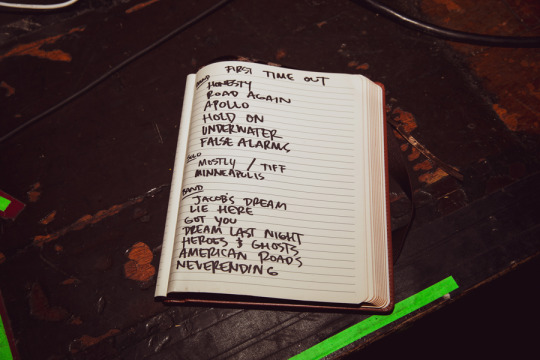 FIRST TIME OUT
BAND
HONESTY
ROAD AGAIN
APOLLO
HOLD ON
UNDERWATER
FALSE ALARMS
SOLO
MOSTLY / TIFF
MINNEAPOLIS
BAND
JACOB'S DREAM
LIE HERE
GOT YOU
DREAM LAST NIGHT
HEROES & GHOSTS
AMERICAN ROADS
NEVERENDING